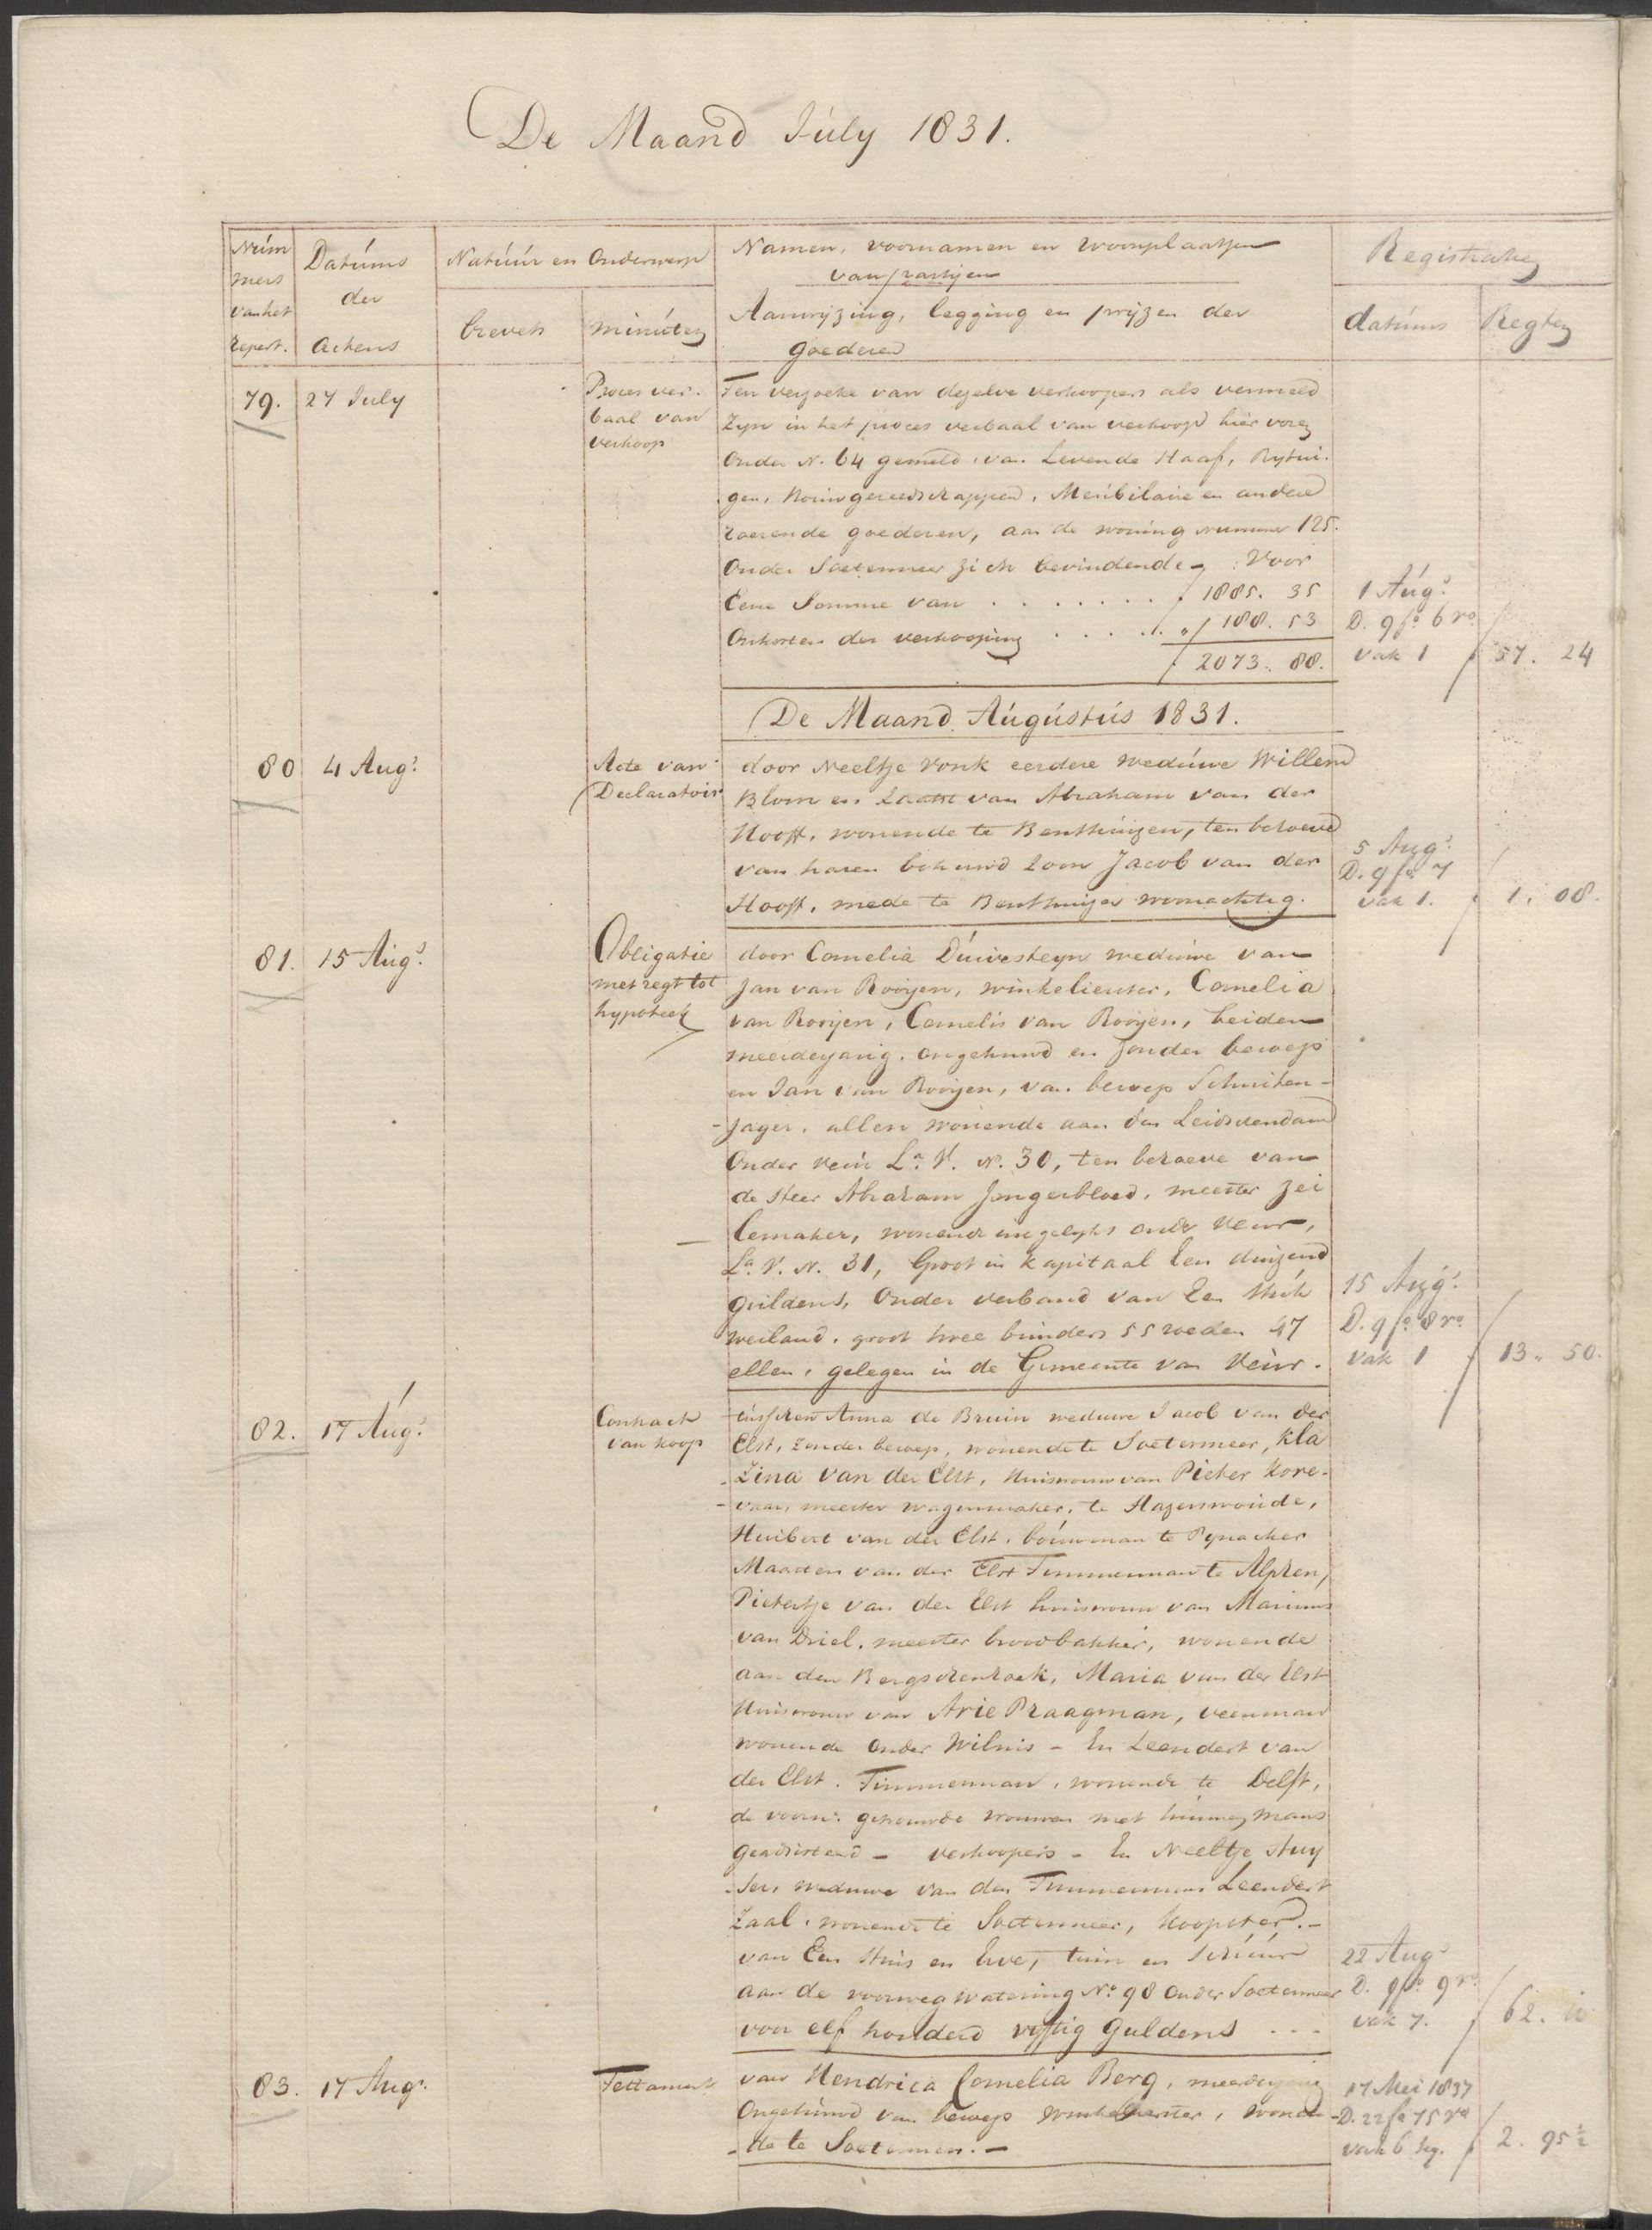 De Maand July 1831.
Num
mers
van het
repert.
Datums
der
Actens
Natuur en Onderwerp
brevets
minúten
Namen, voornamen en woonplaatsen
van partijen
Aanwijzing, legging en prijzen der
goederen
Registratien
datúms
Regten
79.
27 July
Proces ver-
baal van
verkoop
Ten verzoeke van dezelve verkoopers als vermeld
Zyn in het proces verbaal van verkoop hier voren
Onder N. 64 gemeld, van Levende Haaf, Rytui-
gen, Bouwgereedschappen, Meúbilaire en andere
roerende goederen, aan de woning nummer 125.
Onder Soetermeer zich bevindende, Voor
Eene Somme van . . . . . . . ƒ 1885. 35
Onkosten der verkooping . . . . . " 188. 53
ƒ 2073. 88.
1 Aúgs.
D. 9 fo. 6 ro
vak 1
ƒ 57. 24
De Maand Aúgústús 1831.
80
4 Augs.
Acte van
Declaratoir
door Neeltje Vonk eerdere wedúwe Willem
Blom en laatst van Abraham van der
Hooft, wonende te Benthúizen, ten behoeve
van haren behuwd zoon Jacob van der
Hooft, mede te Benthuizen woonachtig.
5 Augs.
D. 9 fo. 7
vak 1.
ƒ 1. 08.
81.
15 Aúgs.
Obligatie
met regt tot
hypotheek
door Cornelia Dúivesteyn wedúwe van
Jan van Rooijen, winkelierster, Cornelia
van Rooijen, Cornelis van Rooijen, beiden
meerderjarig, ongehuwd en zonder beroep
en Jan van Rooijen, van beroep Schuiten-
-jager, allen wonende aan den Leidschendam
Onder Veúr La. V. N. 30, ten behoeve van
de Heer Abraham Jongerbloed, meester zei
lemaker, wonende insgelyks onder Veur,
La. V. N. 31, Groot in kapitaal Een duizend
guldens, Onder verband van Een stúk
weiland, groot twee búnders 55 roeden 47
ellen, gelegen in de Gemeente van Veúr.
15 Aúgs.
D. 9 fo. 8 ro.
vak 1
ƒ 13. 50.
82.
17 Aúgs.
Contract
van koop
tússchen Anna de Bruin weduwe Jacob van der
Elst, zonder beroep, wonende te Soetermeer, Kla
-zina van der Elst, Huisvrouw van Pieter Kore-
-vaar, meester wagenmaker, te Hazerswoúde,
Huibert van der Elst, boúwman te Pynacker
Maarten van der Elst Timmerman te Alphen,
Pietertje van der Elst huisvrouw van Marinus
van Driel, meester broodbakker, wonende
aan den Bergschenhoek, Maria van der Elst
Huisvrouw van Arie Praagman, veenman
wonende onder Wilnis - En Leendert van
der Elst, Timmerman, wonende te Delft,
de voorn. gehuwde vrouwen met húnne mans
geadsisteerd - verkoopers - En Neeltje Huy
-ser, weduwe van den Timmerman Leendert
Zaal, wonende te Soetermeer, Koopster. -
van Een Huis en Erve, tuin en Schúúr
aan de voorweg watering No. 98 Onder Soetermeer
voor elf honderd vyftig Guldens . . .
22 Augs
D. 9 fo. 9 ro.
vak 7.
ƒ 62.
83.
17 Augs.
Testament
van Hendrica Cornelia Berg, meerderjarig
Ongehúwd van beroep winkelierster, wonen-
-de te Soetermeer. -
17 Mei 1837
D. 22 fo 75 vo
vak 6 sq.
ƒ 2. 95 ½